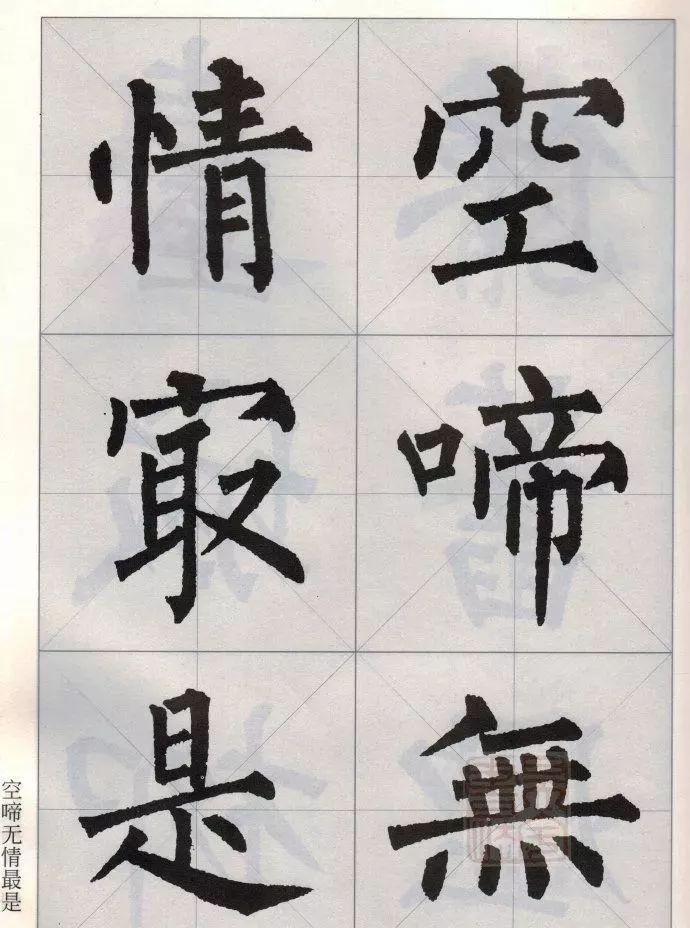 空啼無
情㝡是
空啼无情最是